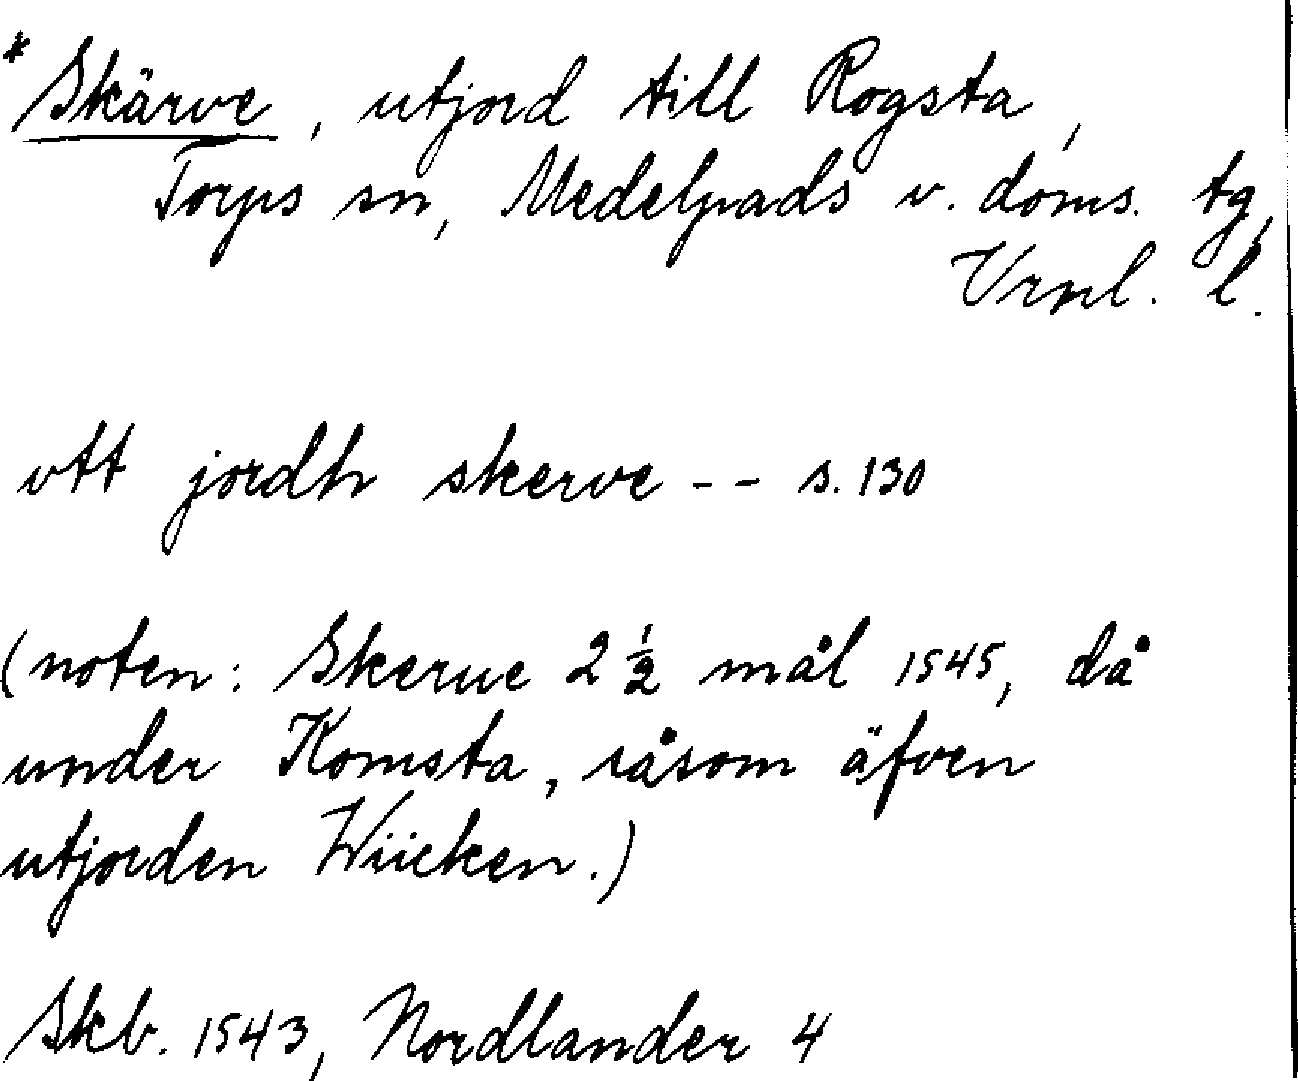 * Skärve, utjord till Rogsta,
Torps sn, Medelpads v. doms. tg,
Vrnl. l.
vtt jordh skerve -- s. 130
(noten: Skerue 2 ½ mål 1545, då
under Komsta, såsom äfven
utjorden Wiicken.)
Skb. 1543, Nordlander 4